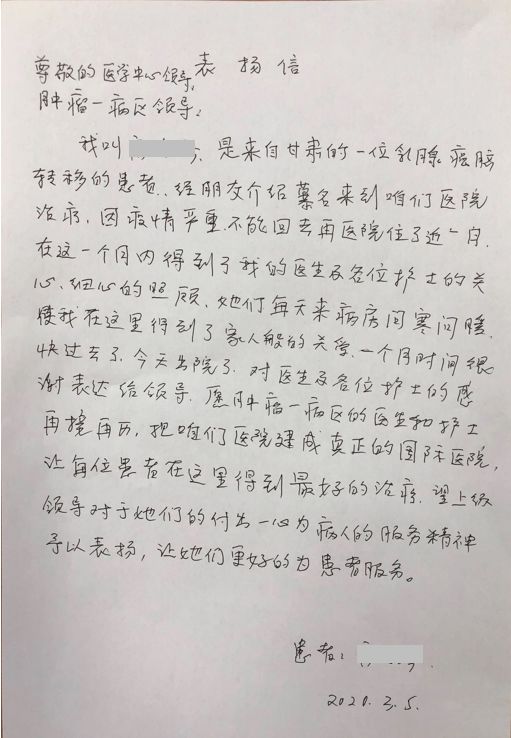 表扬信
尊敬的医学中心领导:
肿瘤一病区领导:
我叫 是来自甘肃的一位乳腺癌脑
转移的患者、经朋友介绍慕名来到咱们医院
治疗,因疫情严重,不能回去再医院住了近一月.
在这一个月内得到了我的医生及各位护士的关
心、细心的照顾、她们每天来病房问寒问暖.
使我在这里得到了家人般的关爱、一个月时间很
快过去了.今天出院了.对医生及各位护士的感
谢表达给领导.愿肿瘤一病区的医生和护士
再接再历,把咱们医院建成真正的国际医院,
让每位患者在这里得到最好的治疗.望上级
领导对于她们的付出一心为病人的服务精神
予以表扬,让她们更好的为患者服务。
患者:
2020.3.5.